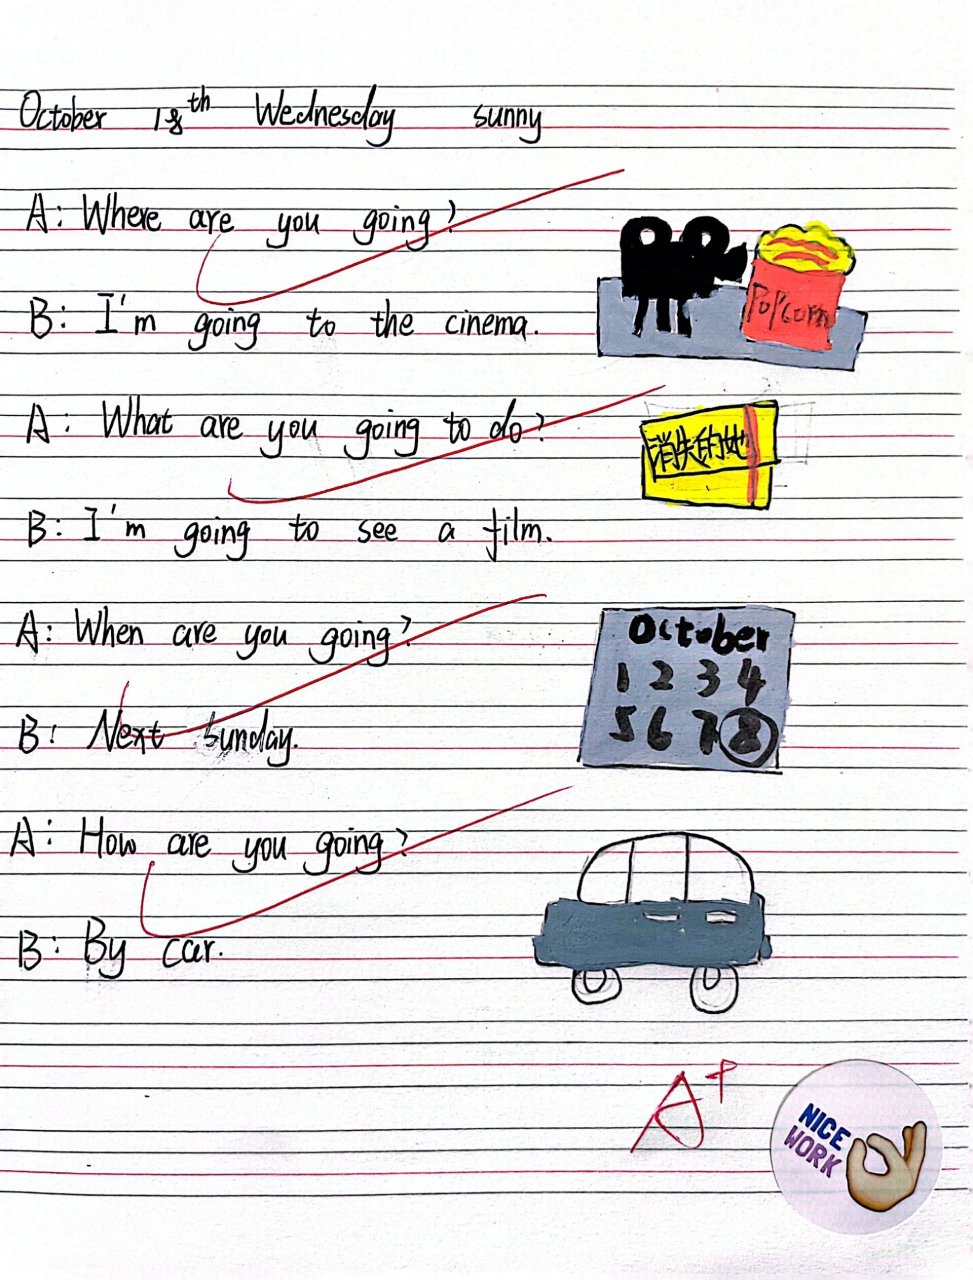 October 18th Wednesday sunny
A: Where are you going?
B: I'm going to the cinema.
POPCorn
A: What are you going to do?
消失的她
B: I'm going to see a film.
A: When are you going?
October
1 2 3 4
5 6 7 8
B: Next Sunday.
A: How are you going?
B: By car.
A+
NICE
WORK